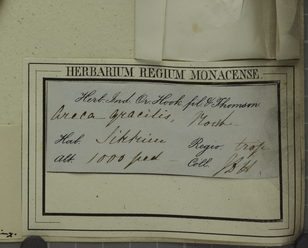 HERBARIUM REGIUM MONACENSE.
Herb. Ind. Or. Hook. fil. & Thomson
Areca gracilis, Roxb.
Hab. Sikkim Regio trop.
Alt. 1000 ped Coll. J.D.H.